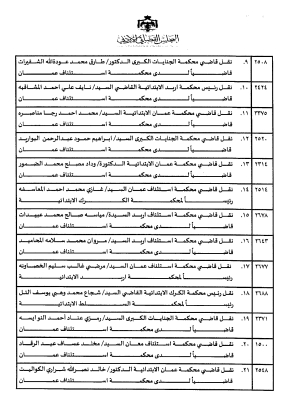 المجلس القضائي الأردني
٢٥٠٨ ٩. نقل قاضي محكمة الجنايات الكبرى الدكتور/ طارق محمد عودة الله الشقيرات
قاضياً لدى محكمة استئناف عمان
٢٤٢٤ ١٠. نقل رئيس محكمة اربد الابتدائية القاضي السيد/ نايف علي احمد المشاقبه
قاضياً لدى محكمة استئناف عمان
٢٣٧٥ ١١. نقل قاضي محكمة عمان الابتدائية السيد/ محمد احمد رجا مناصره
قاضياً لدى محكمة استئناف عمان
٢٥٢٠ ١٢. نقل قاضي محكمة الجنايات الكبرى السيد/ ابراهيم حمود عبدالرحمن البواريد
قاضياً لدى محكمة استئناف عمان
٢٣١٤ ١٣. نقل قاضي محكمة عمان الابتدائية الدكتورة/ وداد مصلح محمد الضمور
قاضياً لدى محكمة استئناف عمان
٢٥١٤ ١٤. نقل قاضي محكمة استئناف عمان السيد/ غازي محمد احمد المعاسفه
رئيساً لمحكمة الكرك الابتدائية
٢٦٧٨ ١٥. نقل قاضي محكمة استئناف اربد السيدة/ مياسه صالح محمد عبيدات
قاضياً لدى محكمة استئناف عمان
٢٦٤٣ ١٦. نقل قاضي محكمة استئناف اربد السيد/ مروان محمد سلامه المحاميد
قاضياً لدى محكمة استئناف عمان
٢٦٧٧ ١٧. نقل قاضي محكمة استئناف عمان السيد/ مرضي غالب سليم الخصاونه
رئيساً لمحكمة اربد الابتدائية
٢٦٨٨ ١٨. نقل رئيس محكمة الكرك الابتدائية القاضي السيد/ شجاع محمد وهبي يوسف التل
رئيساً لمحكمة السلط الابتدائية
٢٣٧١ ١٩. نقل قاضي محكمة الجنايات الكبرى السيد/ رمزي عناد احمد النوايسه
قاضياً لدى محكمة استئناف عمان
١٥٠٠ ٢٠. نقل قاضي محكمة استئناف معان السيد/ مخلد عساف عيد الرقاد
قاضياً لدى محكمة استئناف عمان
٢٥٤٨ ٢١. نقل قاضي محكمة عمان الابتدائية الدكتور/ خالد نصرالله شراري الكواليت
قاضياً لدى محكمة استئناف عمان